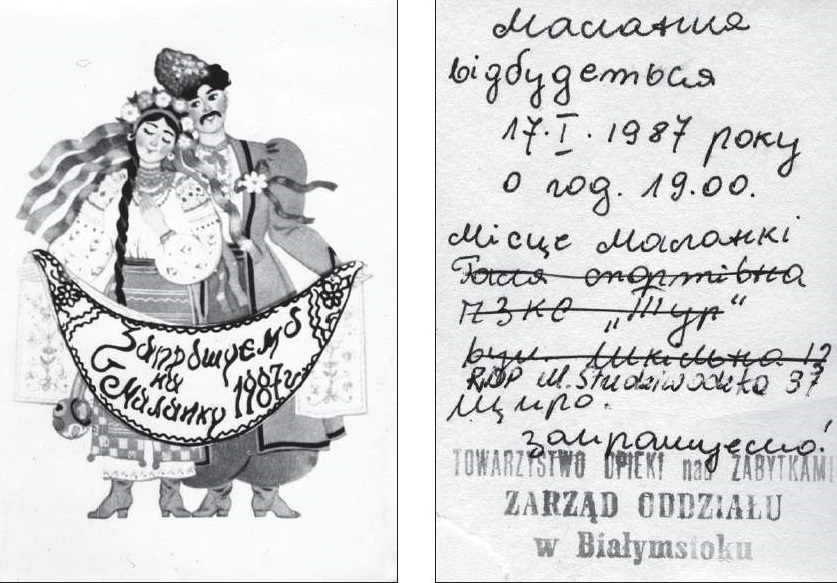 Запрошуємо
на
Маланку 1987г
Маланка
відбудеться
17.I.1987 року
о год. 19.00.
Місце Маланкі
спортівна
МЗКС „Тур“
вул. Шкільна 12
ul. Studziwodzka 37
Щиро
запрашуємо!
TOWARZYSTWO OPIEKI nad ZABYTKAMI
ZARZĄD ODDZIAŁU
w Białymstoku